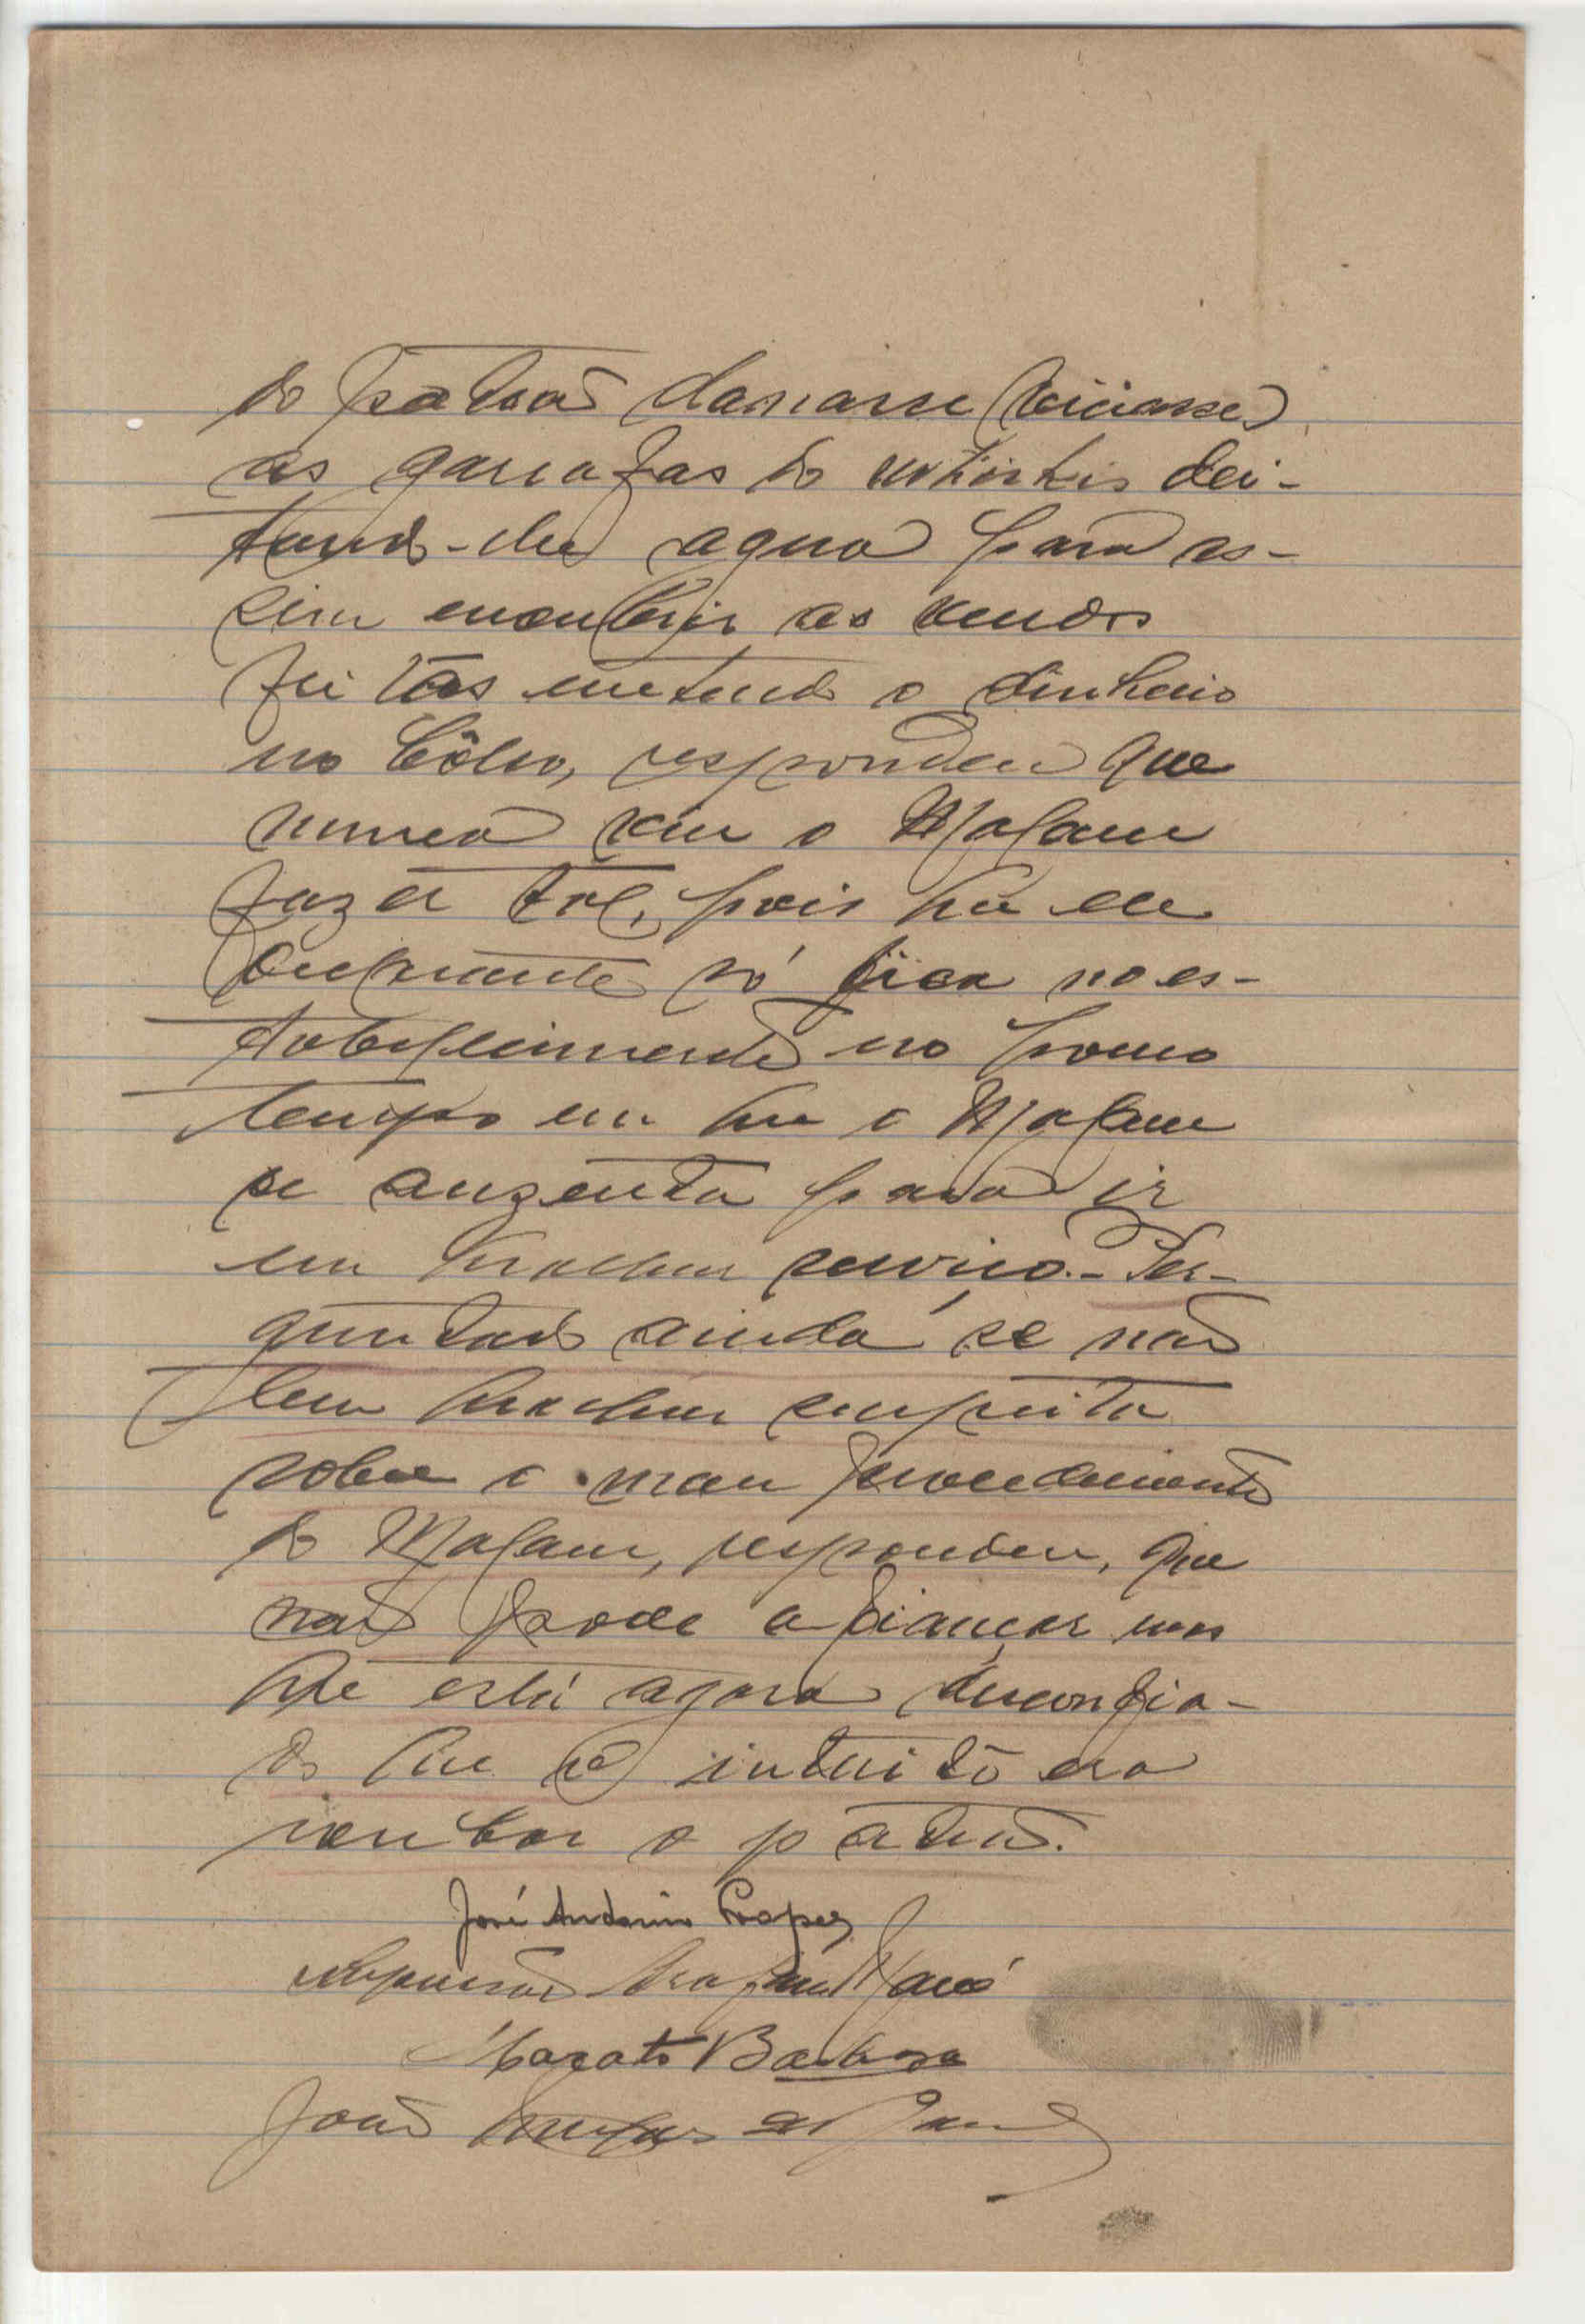 do patrão damnasse (viciasse)
as garrafas do whiskis dei-
tando-lhe agua para as-
sim encubrir as vendas
feitas metendo o dinheiro
no bôlso, respondeu que
nunca viu o Mafame
fazer tal, pois que ele
declarante só fica no es-
tabelecimento no pouco
tempo em que o Mafame
se auzenta para ir
em qualquer serviço. - Per-
guntado ainda se não
tem qualquer suspeita
sobre o mau procedimento
do Mafame, respondeu, que
não pode afiançar mas
que está agora desconfia-
do que o intuito era
roubar o patrão.
José Antonio Lopes
Barbosa
João